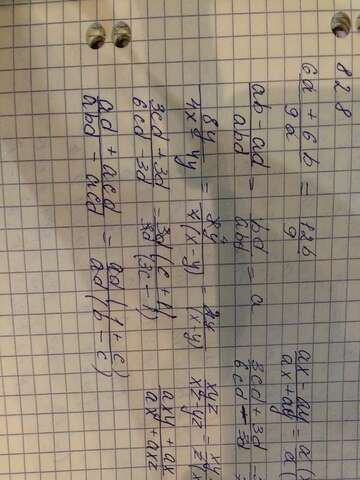 828
6a + 6b / 9a = 12b / 9
ab - ad / abd = bd / abd = a
8y / 4x - 4y = 8y / 4(x - y) = 2y / (x - y)
3cd + 3d / 6cd - 3d = 3d(c + 1) / 3d(3c - 1)
ad + acd / abd - acd = ad(1 + c) / ad(b - c)
ax - ay / ax + ay = a(x / a(
3cd + 3d / 6cd - 3d
xyz / xz - yz = xy / z(x
axy + ax / ax + axz